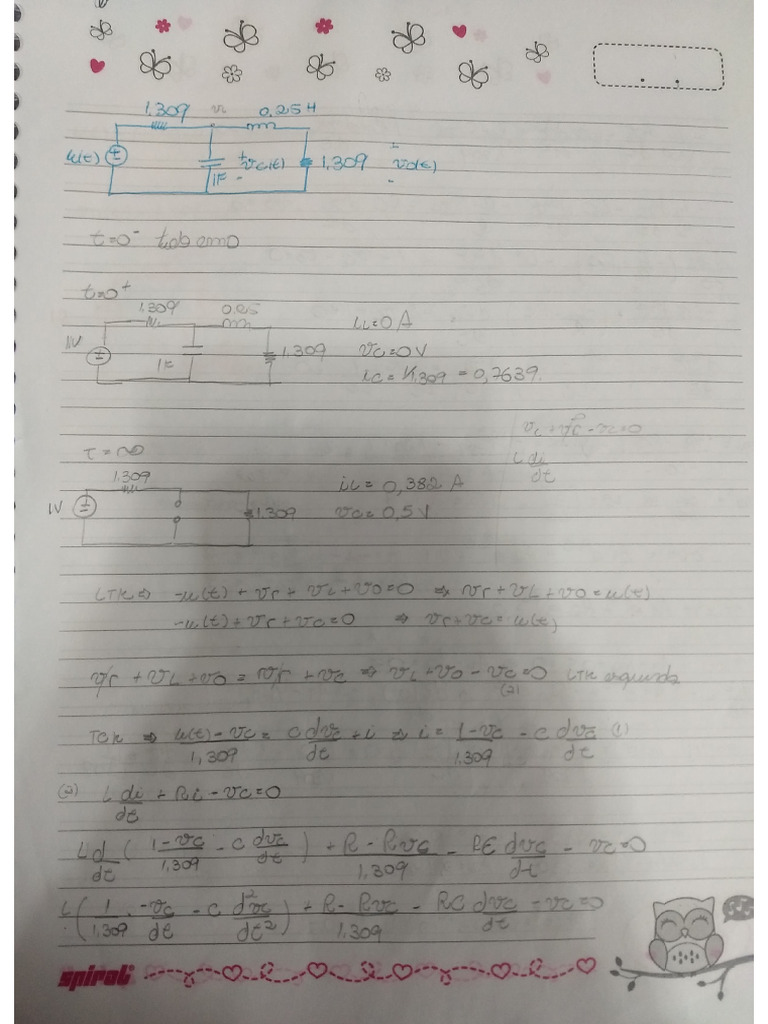 1,309 vc 0,25H
u(t) vc(t) 1F 1,309 vo(t)
t=0⁻
t=0⁺
1,309 0,25
1V 1F 1,309
iL=0 A
vc=0 V
ic = 1/1,309 = 0,7639
L di/dt
t=∞
1,309
1V 1,309
iL= 0,382 A
vc= 0,5 V
LTK ⇒ -u(t) + vr + vL + vo=0 ⇒ vr+vL+vo=u(t)
-u(t)+vr+vc=0 ⇒ vr+vc=u(t)
vr + vL+vo = vr +vc ⇒ vL+vo - vc=0 (2) LTK
TCK ⇒ u(t)-vc/1,309 = C dvc/dt + i ⇒ i = 1-vc/1,309 - C dvc/dt (1)
(2) L di/dt + Ri - vc=0
L d/dt ( 1-vc/1,309 - C dvc/dt ) + R - Rvc/1,309 - RC dvc/dt - vc=0
L ( 1/1,309 . -vc/dt - C d²vc/dt² ) + R - Rvc/1,309 - RC dvc/dt - vc=0
spiral